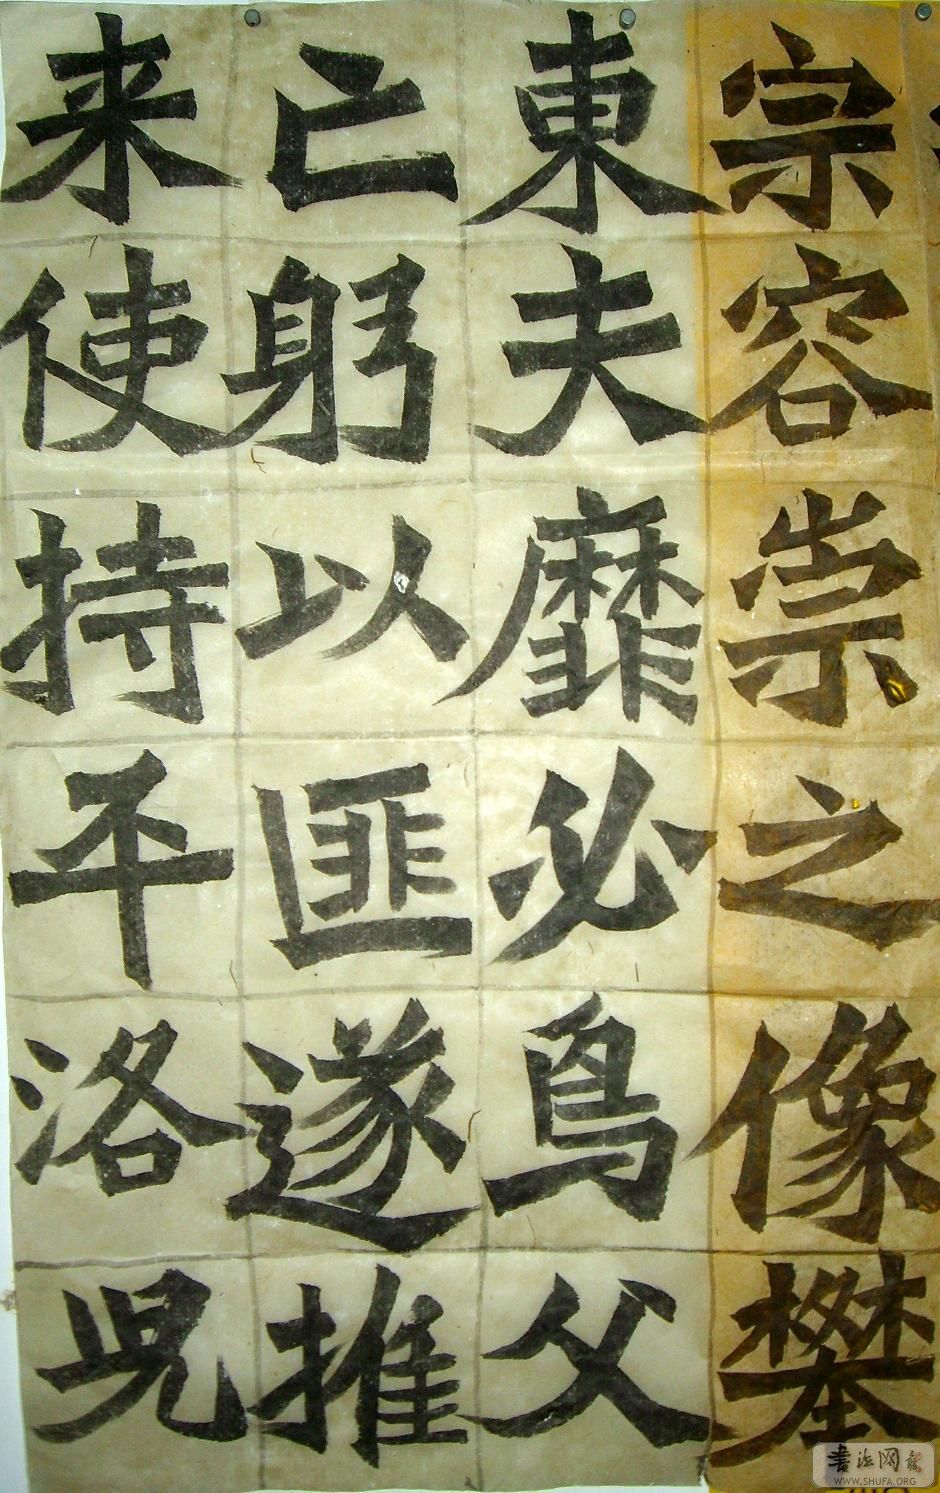 宗容崇之像
東夫靡必鳥父
亡躬以匪遂推
来使持平洛
書法网
WWW.SHUFA.ORG